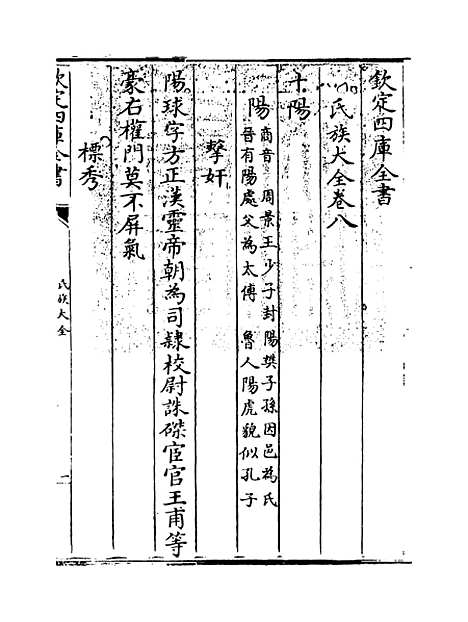 欽定四庫全書
氏族大全卷八
十陽
陽
商音 周景王少子封陽樊子孫因邑為氏
晉有陽處父為太傅 魯人陽虎貌似孔子
擊奸
陽球字方正漢靈帝朝為司隷校尉誅磔宦官王甫等
豪右權門莫不屏氣
標秀
欽定四庫全書
氏族大全
一